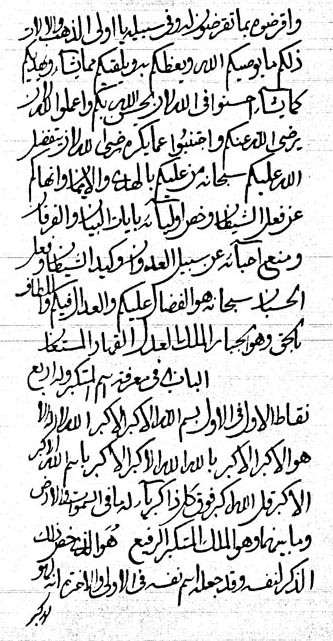 واقرضوه بما تقرضون له وفي سبيله يا اولي الذهب
ذلكم ما يوصيكم الله ويعظكم به ويلقنكم ما يشاء ويهديكم
كما يشاء احسنوا في الله لان يحسن الله بكم واعملوا لله لان
يرضى الله عنكم واجتنبوا عما يكره الله لان يتفضل
الله عليكم سبحانه من عليكم بالهدى والايمان وانهاكم
عن فعل الشيطان وخص اوليائه بايات البيان والفرقان
ومنع احبائه عن سبيل العدوان وكيد الشيطان وفعل
الخسران سبحانه هو الفضال عليكم والعدال فيكم والطاف
بالحق وهو الجبار الملك العدل القهار المستعان
الباب في معرفة اسم المتكبر وله اربع
نقاط الاول في الاول بسم الله الاكبر الاكبر الله لا اله الا
هو الاكبر الاكبر بالله الله الاكبر الاكبر باسم الله الاكبر
الاكبر قل الله اكبر فوق كل ذا كبرآء له ما في السموات والارض
وما بينهما وهو الملك المتكبر الرفيع هو الذي خص ذلك
الذكر لنفسه وقد جعله اسم نفسه في الاولى والاخرة انه لهو